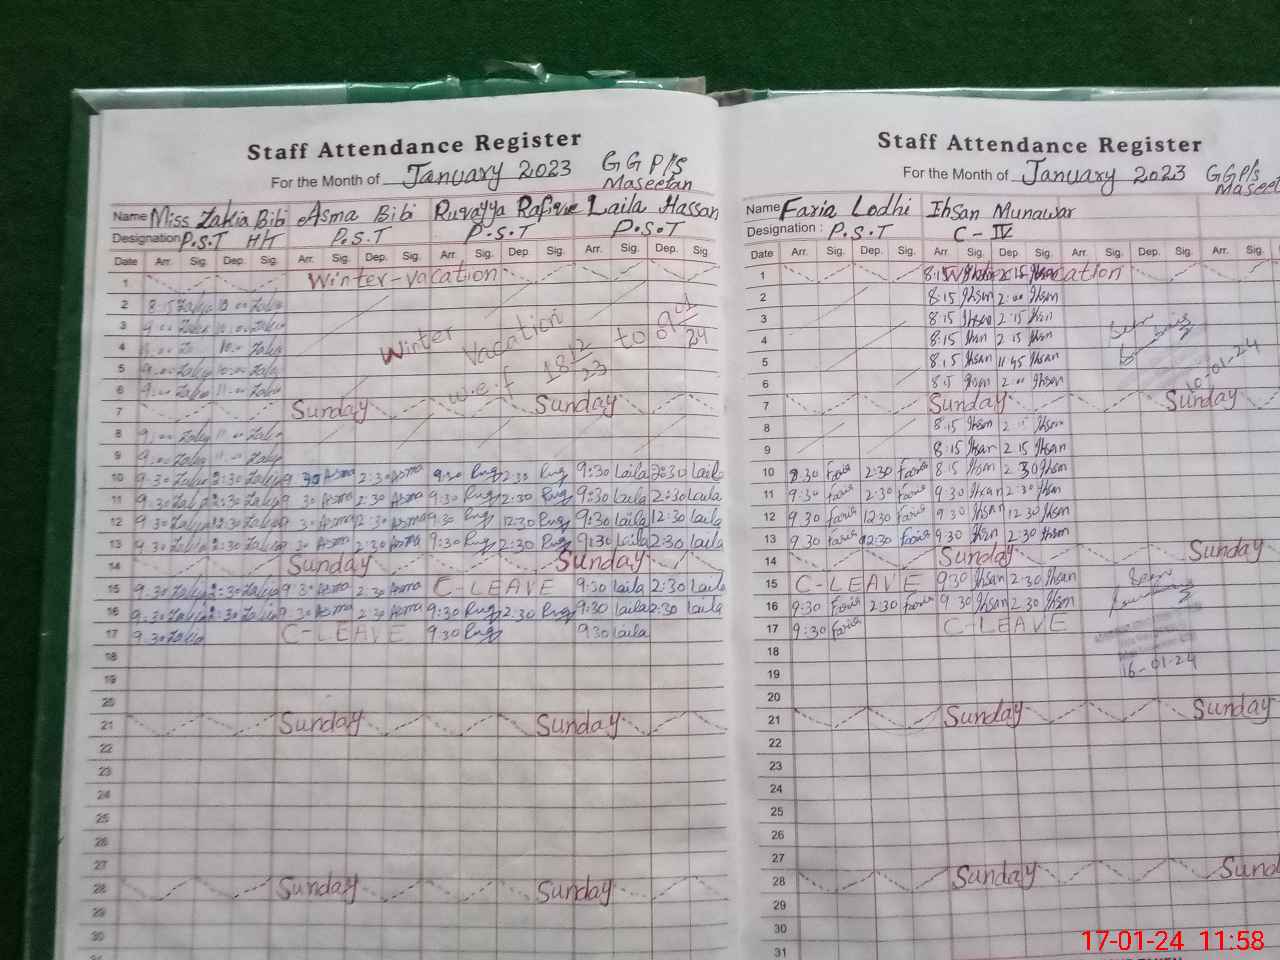 Staff Attendance Register
For the Month of January 2023 GGP/S Maseetan
Name Miss Zakia Bibi Asma Bibi Ruqayya Rafique Laila Hassan
Designation P.S.T H/T P.S.T P.S.T P.S.T
Date Arr. Sig. Dep. Sig. Arr. Sig. Dep. Sig. Arr. Sig. Dep. Sig. Arr. Sig. Dep. Sig.
1 Winter-vacation
2 8:15 Zakia 10:00 Zakia
3 9:00 Zakia 10:00 Zakia
4 10:00 Zakia
5 9:00 Zakia 11:00 Zakia
6 9:00 Zakia 11:00 Zakia
Winter vacation w.e.f 18/12/23 to 09/01/24
7 Sunday Sunday
8 9:00 Zakia 11:00 Zakia
9 9:00 Zakia 11:00 Zakia
10 9:30 Zakia 2:30 Zakia 9:30 Asma 2:30 Asma 9:30 Ruq 2:30 Ruq 9:30 Laila 2:30 Laila
11 9:30 Zakia 2:30 Zakia 9:30 Asma 2:30 Asma 9:30 Ruq 2:30 Ruq 9:30 Laila 2:30 Laila
12 9:30 Zakia 12:30 Zakia 9:30 Asma 12:30 Asma 9:30 Ruq 12:30 Ruq 9:30 Laila 12:30 Laila
13 9:30 Zakia 2:30 Zakia 9:30 Asma 2:30 Asma 9:30 Ruq 2:30 Ruq 9:30 Laila 2:30 Laila
14 Sunday Sunday
15 9:30 Zakia 2:30 Zakia 9:30 Asma 2:30 Asma C-LEAVE 9:30 Laila 2:30 Laila
16 9:30 Zakia 2:30 Zakia 9:30 Asma 2:30 Asma 9:30 Ruq 2:30 Ruq 9:30 Laila 2:30 Laila
17 9:30 Zakia C-LEAVE 9:30 Ruq 9:30 Laila
18
19
20
21 Sunday Sunday
22
23
24
25
26
27
28 Sunday Sunday
29
30
Staff Attendance Register
For the Month of January 2023 GGP/S Maseet
Name Faria Lodhi Ihsan Munawar
Designation : P.S.T C-IV
Date Arr. Sig. Dep. Sig. Arr. Sig. Dep. Sig. Arr. Sig. Dep. Sig. Arr. Sig.
1 8:15 Ihsan 2:15 Ihsan
2 8:15 Ihsan 2:00 Ihsan
3 8:15 Ihsan 2:15 Ihsan
4 8:15 Ihsan 2:15 Ihsan
5 8:15 Ihsan 11:45 Ihsan
6 8:15 Ihsan 2:00 Ihsan
10-01-24
7 Sunday Sunday
8 8:15 Ihsan 2:15 Ihsan
9 8:15 Ihsan 2:15 Ihsan
10 8:30 Faria 2:30 Faria 8:15 Ihsan 2:30 Ihsan
11 9:30 Faria 2:30 Faria 9:30 Ihsan 2:30 Ihsan
12 9:30 Faria 12:30 Faria 9:30 Ihsan 12:30 Ihsan
13 9:30 Faria 02:30 Faria 9:30 Ihsan 2:30 Ihsan
14 Sunday Sunday
15 C-LEAVE 9:30 Ihsan 2:30 Ihsan
16 9:30 Faria 2:30 Faria 9:30 Ihsan 2:30 Ihsan
17 9:30 Faria C-LEAVE
18
19 16-01-24
20
21 Sunday Sunday
22
23
24
25
26
27
28 Sunday Sunda
29
30
31
17-01-24 11:58